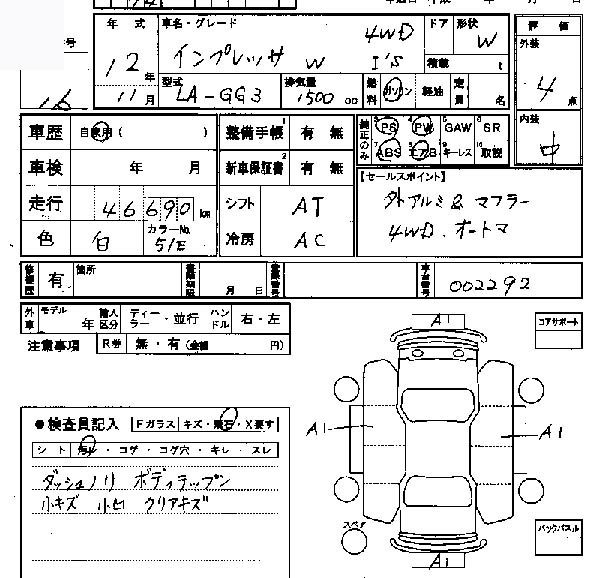 年 式 車名・グレード ドア 形状 評 価
インプレッサ W 4WD I'S W 外装
12年 11月 型式 LA-GG3 排気量 1500 cc 燃料 ガソリン 軽油 定員 名 積載 t 4 点
16
車歴 自家用 ( ) 整備手帳 有 無 純正のみ PS PW GAW SR 内装
車検 年 月 新車保証書 有 無 ABS エアB キーレス 取説 中
走行 46690 km シフト AT 【セールスポイント】
外アルミ & マフラー
色 白 カラーNo. 51E 冷房 AC 4WD. オートマ
修復歴 有 箇所 登録期限 月 日 登録番号 車台番号 002292
外車 モデル 年 輸入区分 ディーラー・並行 ハンドル 右・左
注意事項 R券 無・有 (金額 円)
A1 コアサポート
●検査員記入 Fガラス キズ・飛石・X要す
シート 汚レ・コゲ・コゲ穴・キレ・スレ
A1 A1
ダッシュノリ ボディラップン
小キズ 小凹 クリアキズ
スペア バックパネル
A1